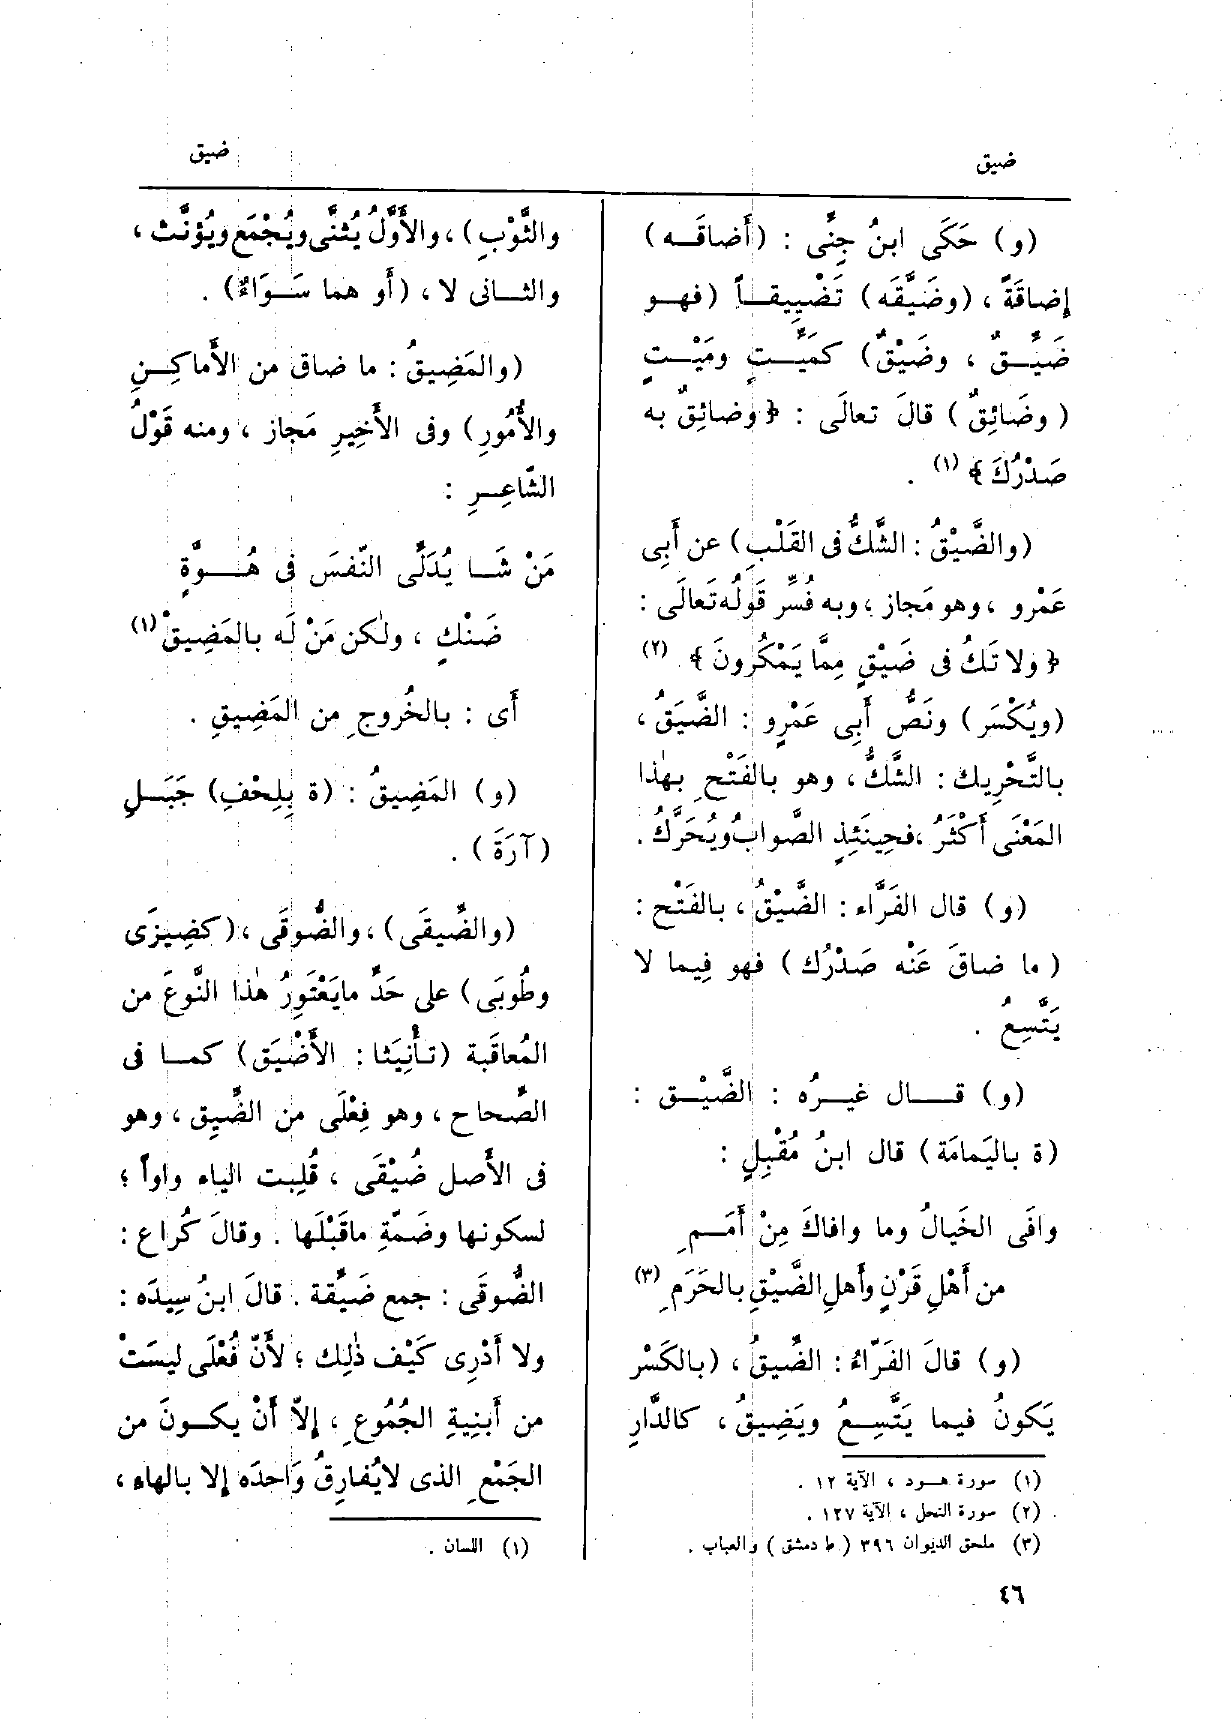 ضيق
ضيق
(و) حَكَى ابنُ جِنِّى : (أَضاقَـه)
إضاقَةً ، (وضَيَّقَه) تَضْيِيقـاً (فهـو
ضَيِّـقٌ ، وضَيْقٌ) كمَيِّـتٍ ومَيْـتٍ
(وضَائِقٌ) قالَ تعالَى : ﴿وضائِقٌ به
صَدْرُكَ﴾ (١) .
(والضَّيْقُ : الشَّكُّ فى القَلْبِ) عن أَبِى
عَمْرو ، وهو مَجاز ، وبه فُسِّرَ قَولُه تَعالَى :
﴿ولا تَكُ فى ضَيْقٍ مِمَّا يَمْكُرونَ﴾ (٢)
(ويُكْسَر) ونَصُّ أَبِى عَمْرٍو : الضَّيَقُ ،
بالتَّحْرِيك : الشَّكُّ ، وهو بالفَتْحِ بهٰذا
المَعْنَى أَكْثَرُ ، فحِينَئِذٍ الصَّوابُ ويُحَرَّكُ .
(و) قال الفَرَّاء : الضَّيْقُ ، بالفَتْح :
(ما ضاقَ عَنْه صَدْرُك) فهو فِيما لا
يَتَّسِعُ .
(و) قـــال غيـرُه : الضَّيْـق :
(ة باليَمامَة) قال ابنُ مُقْبِلٍ :
وافَى الخَيالُ وما وافاكَ مِنْ أَمَـمِ
من أَهْلِ قَرْنٍ وأَهلِ الضَّيْقِ بالحَرَمِ (٣)
(و) قالَ الفَرّاءُ : الضِّيقُ ، (بالكَسْر
يَكونُ فيما يَتَّسِـعُ ويَضِيقُ ، كالدَّارِ
(١) سورة هـود ، الآية ١٢ .
(٢) سورة النحل ، الآية ١٢٧ .
(٣) ملحق الديوان ٣٩٦ (ط دمشق) والعباب .
والثَّوْبِ) ، والأَوَّلُ يُثَنَّى ويُجْمَع ويُؤنَّث ،
والثـانى لا ، (أو هما سَـوَاءٌ) .
(والمَضِيقُ : ما ضاق من الأَماكِـنِ
والأُمُورِ) وفى الأَخِيرِ مَجاز ، ومنه قَوْلُ
الشّاعِـرِ :
مَنْ شَـا يُدَلِّى النّفسَ فى هُـــوَّةٍ
ضَنْكٍ ، ولٰكن مَنْ لَه بالمَضِيقْ (١)
أَى : بالخُروجِ من المَضِيقِ .
(و) المَضِيقُ : (ة بِلِحْفِ) جَبَـلِ
(آرَةَ) .
(والضِّيقَى) ، والضُّوقَى ، (كضِيزَى
وطُوبَى) على حَدِّ ما يَعْتَوِرُ هٰذا النَّوعَ من
المُعاقَبة (تـأْنِيَثا : الأَضْيَق) كمـا فى
الصِّحاح ، وهو فِعْلَى من الضِّيِق ، وهو
فى الأَصل ضُيْقَى ، قُلِبت الياء واواً ؛
لسكونها وضَمّةِ ماقَبْلَها . وقالَ كُراع :
الضُّوقَى : جمع ضَيِّقة . قالَ ابنُ سِيدَه :
ولا أَدْرِى كَيْف ذٰلِك ؛ لأَنّ فُعْلَى ليسَتْ
من أَبنِيةِ الجُمُوعِ ، إلاّ أَنْ يكـونَ من
الجَمْعِ الذى لايُفارِقُ وَاحدَه إلا بالهاء ،
(١) اللسان .
٤٦